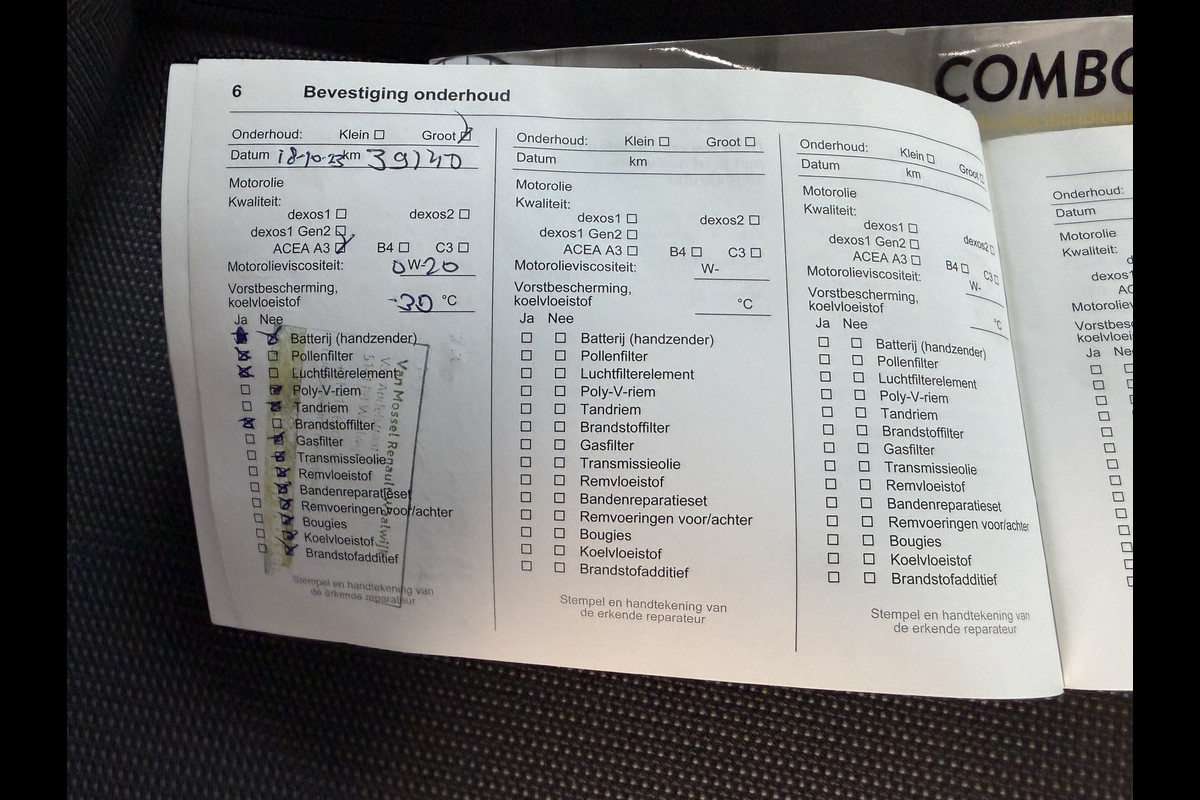 COMBO
6 Bevestiging onderhoud
Onderhoud: Klein ☐ Groot ☑
Datum 18-10-23 km 39140
Motorolie
Kwaliteit:
dexos1 ☐ dexos2 ☐
dexos1 Gen2 ☐
ACEA A3 ☑ B4 ☐ C3 ☐
Motorolieviscositeit: 0 W-20
Vorstbescherming,
koelvloeistof -30 °C
Ja Nee
Batterij (handzender)
Pollenfilter
Luchtfilterelement
Poly-V-riem
Tandriem
Brandstoffilter
Gasfilter
Transmissieolie
Remvloeistof
Bandenreparatieset
Remvoeringen voor/achter
Bougies
Koelvloeistof
Brandstofadditief
Van Mossel Renault
Stempel en handtekening van
de erkende reparateur
Onderhoud: Klein ☐ Groot ☐
Datum km
Motorolie
Kwaliteit:
dexos1 ☐ dexos2 ☐
dexos1 Gen2 ☐
ACEA A3 ☐ B4 ☐ C3 ☐
Motorolieviscositeit: W-
Vorstbescherming,
koelvloeistof °C
Ja Nee
☐ ☐ Batterij (handzender)
☐ ☐ Pollenfilter
☐ ☐ Luchtfilterelement
☐ ☐ Poly-V-riem
☐ ☐ Tandriem
☐ ☐ Brandstoffilter
☐ ☐ Gasfilter
☐ ☐ Transmissieolie
☐ ☐ Remvloeistof
☐ ☐ Bandenreparatieset
☐ ☐ Remvoeringen voor/achter
☐ ☐ Bougies
☐ ☐ Koelvloeistof
☐ ☐ Brandstofadditief
Stempel en handtekening van
de erkende reparateur
Onderhoud: Klein ☐ Groot ☐
Datum km
Motorolie
Kwaliteit:
dexos1 ☐ dexos2 ☐
dexos1 Gen2 ☐
ACEA A3 ☐ B4 ☐ C3 ☐
Motorolieviscositeit: W-
Vorstbescherming,
koelvloeistof °C
Ja Nee
☐ ☐ Batterij (handzender)
☐ ☐ Pollenfilter
☐ ☐ Luchtfilterelement
☐ ☐ Poly-V-riem
☐ ☐ Tandriem
☐ ☐ Brandstoffilter
☐ ☐ Gasfilter
☐ ☐ Transmissieolie
☐ ☐ Remvloeistof
☐ ☐ Bandenreparatieset
☐ ☐ Remvoeringen voor/achter
☐ ☐ Bougies
☐ ☐ Koelvloeistof
☐ ☐ Brandstofadditief
Stempel en handtekening van
de erkende reparateur
Onderhoud:
Datum
Motorolie
Kwaliteit:
dexos1
AC
Motoroliev
Vorstbesc
koelvloei
Ja Nee